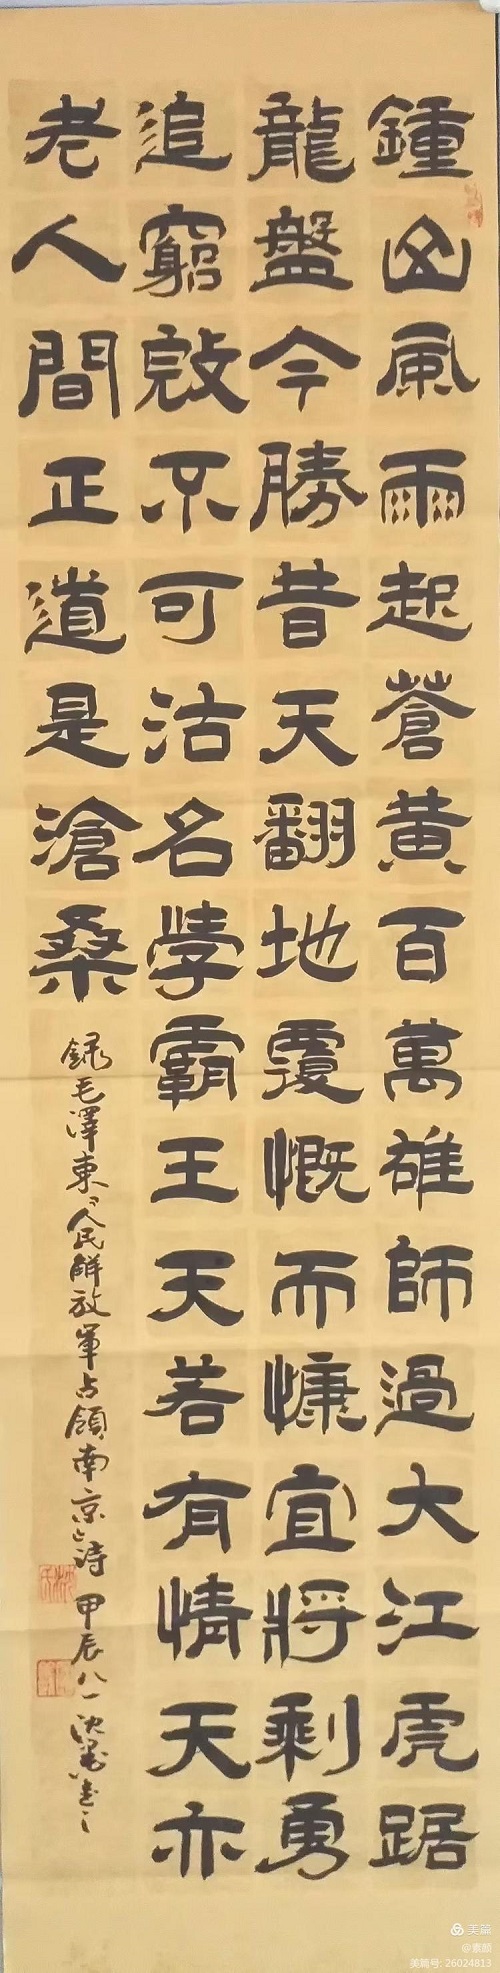 鍾山風雨起蒼黃百萬雄師過大江虎踞
龍盤今勝昔天翻地覆慨而慷宜將剩勇
追窮寇不可沽名學霸王天若有情天亦
老人間正道是滄桑
錄毛澤東人民解放軍占領南京之詩 甲辰八一
美篇
@素颜
美篇号: 26024813